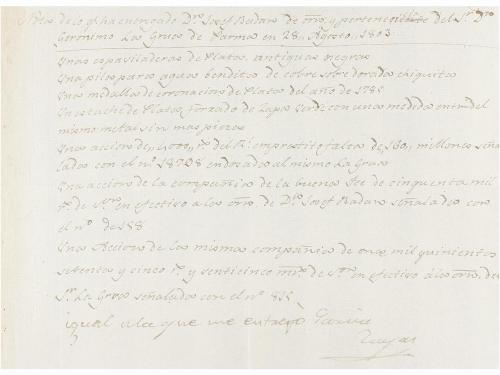 Nota de lo q.e ha entregado D.n Josef Badaro de orn. y pertenec.te del S.r D.n
Geronimo La Grua de Parma en 28, Agosto, 1803
Unas espaviladeras de Platas, antiguas negras
Una pilas para aguas benditas de cobre sobre doradas chiquitas
Una medalla de coronacion de Platas del año de 1789
Un estache de Platas, forrado de Zapa verde con unas medidas entm del
mismo metal sin mas piezas
Una accion de 4000, r.s del R.l emprestito de 160, millones seña
ladas con el n.º 18708 endosadas al mismo La Grua
Una accion de la compañia de la buena fee de cinquenta mil
r.s de v.on en efectivo a los orn. de D.n Josef Badaro señaladas con
el n.º de 188
Una Accion de la misma compañia de once mil quinientos
setenta y cinco r.s y venticinco mrs de v.on en efectivo a la orn. de
S.r La Grua señaladas con el n.º
igual a la que me entregó